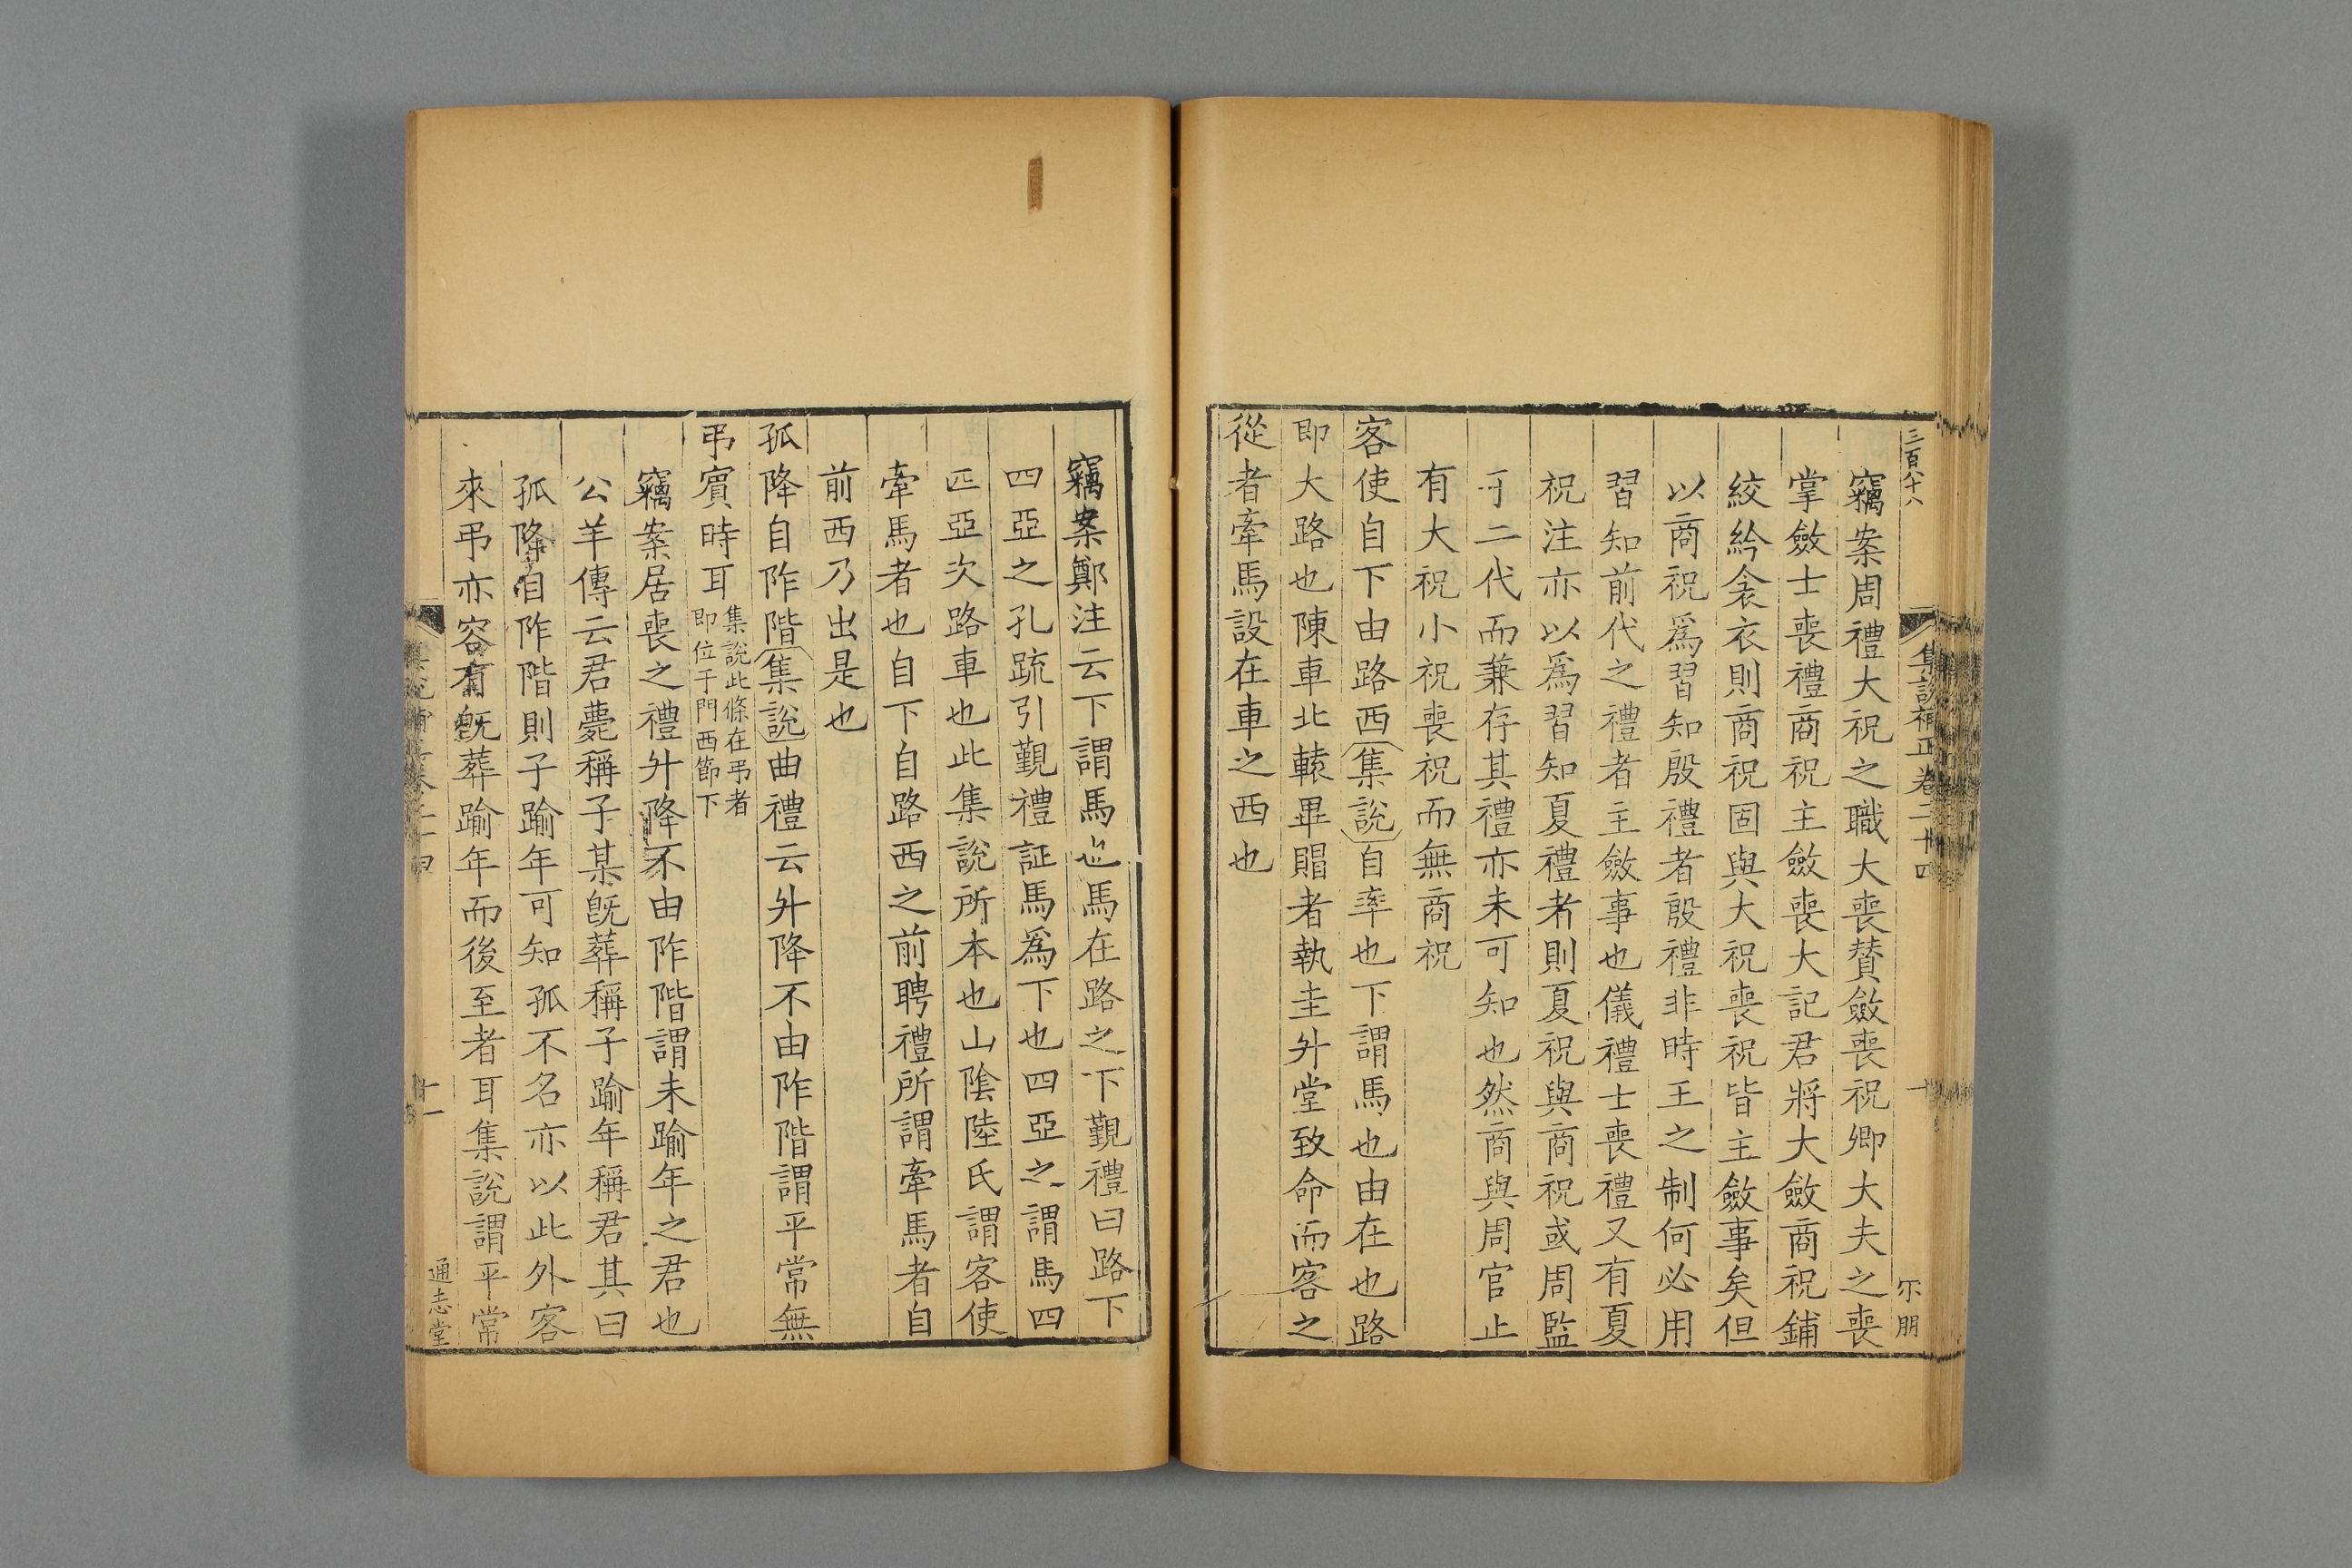 三百八十八
集說補正卷二十四
十
尔朋
竊案周禮大祝之職大喪贊斂喪祝卿大夫之喪
掌斂士喪禮商祝主斂喪大記君將大斂商祝鋪
絞紟衾衣則商祝固與大祝喪祝皆主斂事矣但
以商祝爲習知殷禮者殷禮非時王之制何必用
習知前代之禮者主斂事也儀禮士喪禮又有夏
祝注亦以爲習知夏禮者則夏祝與商祝或周監
于二代而兼存其禮亦未可知也然商與周官止
有大祝小祝喪祝而無商祝
客使自下由路西集說自率也下謂馬也由在也路
即大路也陳車北轅畢賵者執圭升堂致命而客之
從者牽馬設在車之西也
竊案鄭注云下謂馬也馬在路之下覲禮曰路下
四亞之孔疏引覲禮証馬爲下也四亞之謂馬四
匹亞次路車也此集說所本也山陰陸氏謂客使
牽馬者也自下自路西之前聘禮所謂牽馬者自
前西乃出是也
孤降自阼階集說曲禮云升降不由阼階謂平常無
弔賓時耳集說此條在弔者即位于門西節下
竊案居喪之禮升降不由阼階謂未踰年之君也
公羊傳云君薨稱子某旣葬稱子踰年稱君其曰
孤降自阼階則子踰年可知孤不名亦以此外客
來弔亦容有旣葬踰年而後至者耳集說謂平常
十一
通志堂